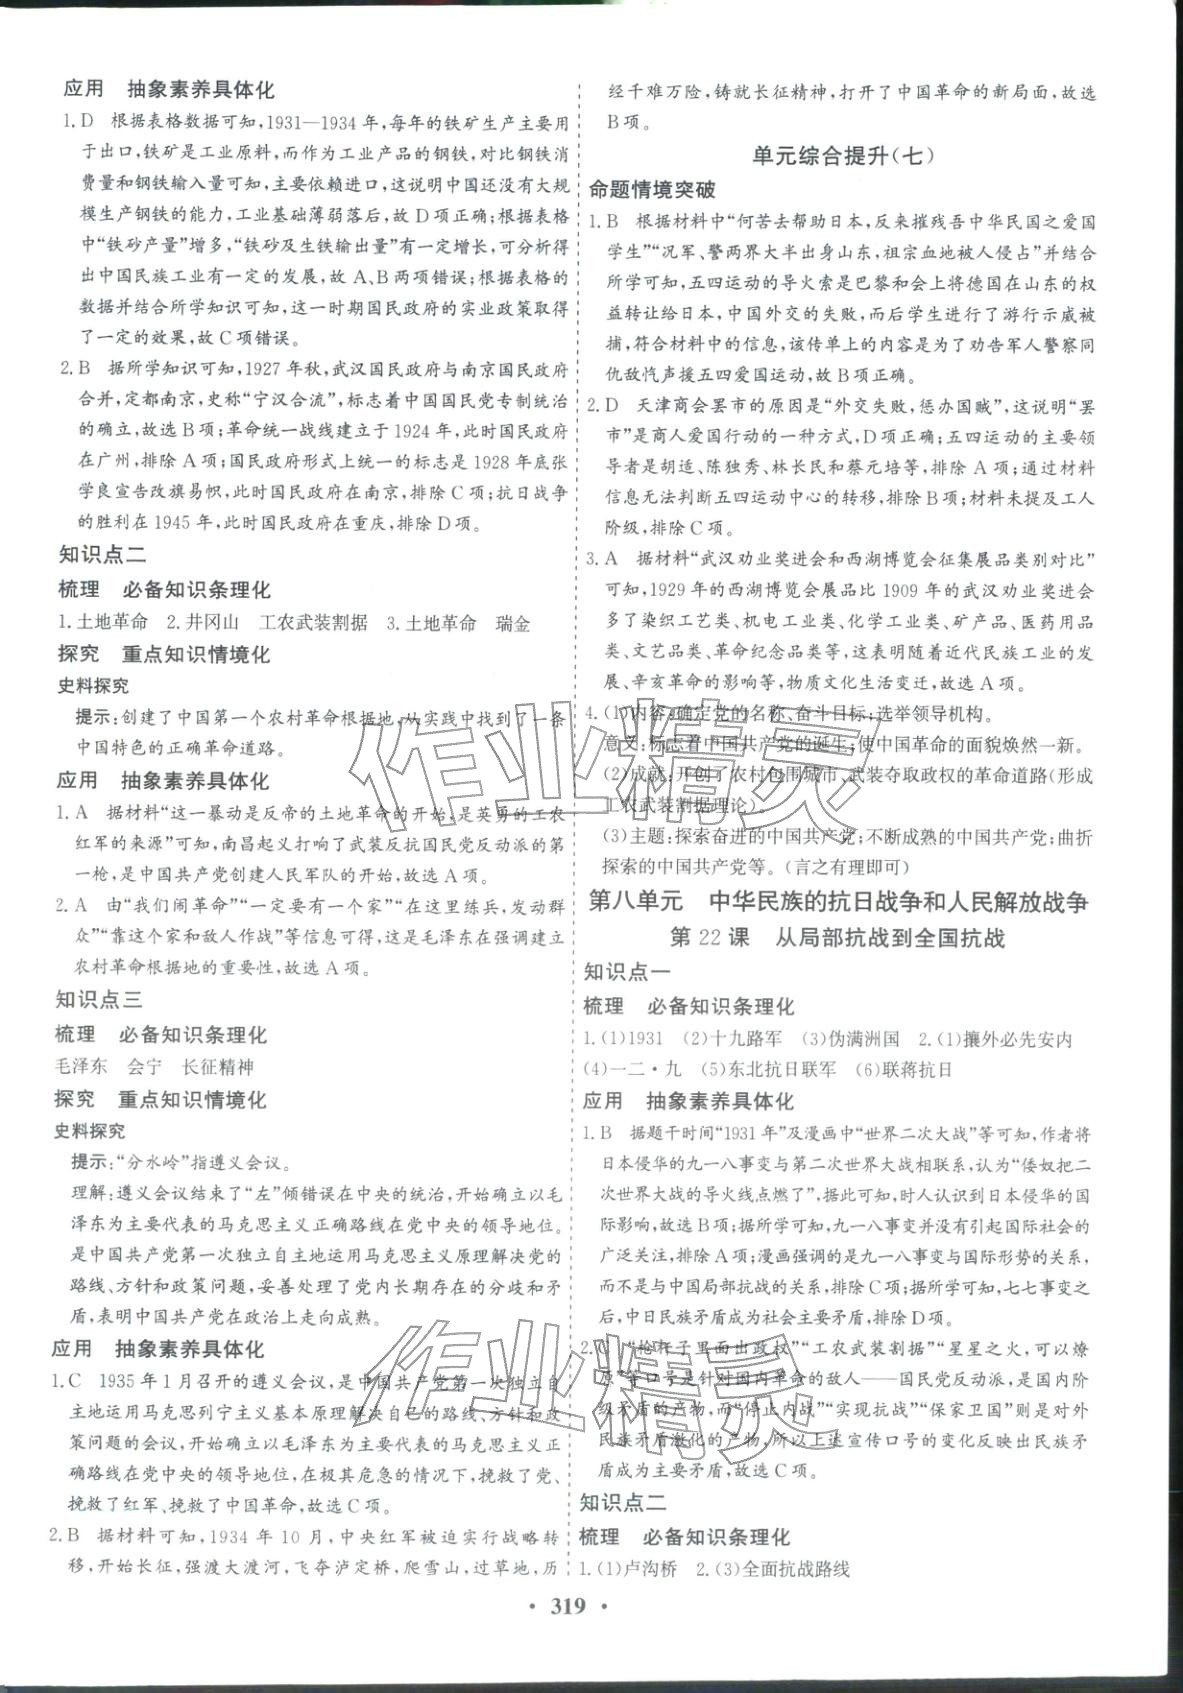 应用　抽象素养具体化
1. D　根据表格数据可知,1931—1934年,每年的铁矿生产主要用
于出口,铁矿是工业原料,而作为工业产品的钢铁,对比钢铁消
费量和钢铁输入量可知,主要依赖进口,这说明中国还没有大规
模生产钢铁的能力,工业基础薄弱落后,故D项正确;根据表格
中“铁砂产量”增多,“铁砂及生铁输出量”有一定增长,可分析得
出中国民族工业有一定的发展,故A、B两项错误;根据表格的
数据并结合所学知识可知,这一时期国民政府的实业政策取得
了一定的效果,故C项错误。
2. B　据所学知识可知,1927年秋,武汉国民政府与南京国民政府
合并,定都南京,史称“宁汉合流”,标志着中国国民党专制统治
的确立,故选B项;革命统一战线建立于1924年,此时国民政府
在广州,排除A项;国民政府形式上统一的标志是1928年底张
学良宣告改旗易帜,此时国民政府在南京,排除C项;抗日战争
的胜利在1945年,此时国民政府在重庆,排除D项。
知识点二
梳理　必备知识条理化
1.土地革命　2.井冈山　工农武装割据　3.土地革命　瑞金
探究　重点知识情境化
史料探究
提示:创建了中国第一个农村革命根据地,从实践中找到了一条
中国特色的正确革命道路。
应用　抽象素养具体化
1. A　据材料“这一暴动是反帝的土地革命的开始,是英勇的工农
红军的来源”可知,南昌起义打响了武装反抗国民党反动派的第
一枪,是中国共产党创建人民军队的开始,故选A项。
2. A　由“我们闹革命”“一定要有一个家”“在这里练兵,发动群
众”“靠这个家和敌人作战”等信息可得,这是毛泽东在强调建立
农村革命根据地的重要性,故选A项。
知识点三
梳理　必备知识条理化
毛泽东　会宁　长征精神
探究　重点知识情境化
史料探究
提示:“分水岭”指遵义会议。
理解:遵义会议结束了“左”倾错误在中央的统治,开始确立以毛
泽东为主要代表的马克思主义正确路线在党中央的领导地位。
是中国共产党第一次独立自主地运用马克思主义原理解决党的
路线、方针和政策问题,妥善处理了党内长期存在的分歧和矛
盾,表明中国共产党在政治上走向成熟。
应用　抽象素养具体化
1. C　1935年1月召开的遵义会议,是中国共产党第一次独立自
主地运用马克思列宁主义基本原理解决自己的路线、方针和政
策问题的会议,开始确立以毛泽东为主要代表的马克思主义正
确路线在党中央的领导地位,在极其危急的情况下,挽救了党、
挽救了红军、挽救了中国革命,故选C项。
2. B　据材料可知,1934年10月,中央红军被迫实行战略转
移,开始长征,强渡大渡河,飞夺泸定桥,爬雪山,过草地,历
经千难万险,铸就长征精神,打开了中国革命的新局面,故选
B项。
单元综合提升(七)
命题情境突破
1. B　根据材料中“何苦去帮助日本,反来摧残吾中华民国之爱国
学生”“况军、警两界大半出身山东,祖宗血地被人侵占”并结合
所学可知,五四运动的导火索是巴黎和会上将德国在山东的权
益转让给日本,中国外交的失败,而后学生进行了游行示威被
捕,符合材料中的信息,该传单上的内容是为了劝告军人警察同
仇敌忾声援五四爱国运动,故B项正确。
2. D　天津商会罢市的原因是“外交失败,惩办国贼”,这说明“罢
市”是商人爱国行动的一种方式,D项正确;五四运动的主要领
导者是胡适、陈独秀、林长民和蔡元培等,排除A项;通过材料
信息无法判断五四运动中心的转移,排除B项;材料未提及工人
阶级,排除C项。
3. A　据材料“武汉劝业奖进会和西湖博览会征集展品类别对比”
可知,1929年的西湖博览会展品比1909年的武汉劝业奖进会
多了染织工艺类、机电工业类、化学工业类、矿产品、医药用品
类、文艺品类、革命纪念品类等,这表明随着近代民族工业的发
展、辛亥革命的影响等,物质文化生活变迁,故选A项。
4.(1)内容:确定党的名称、奋斗目标;选举领导机构。
意义:标志着中国共产党的诞生;使中国革命的面貌焕然一新。
(2)成就:开创了农村包围城市、武装夺取政权的革命道路(形成
工农武装割据理论)。
(3)主题:探索奋进的中国共产党;不断成熟的中国共产党;曲折
探索的中国共产党等。(言之有理即可)
第八单元　中华民族的抗日战争和人民解放战争
第22课　从局部抗战到全国抗战
知识点一
梳理　必备知识条理化
1.(1)1931　(2)十九路军　(3)伪满洲国　2.(1)攘外必先安内
(4)一二·九　(5)东北抗日联军　(6)联蒋抗日
应用　抽象素养具体化
1. B　据题干时间“1931年”及漫画中“世界二次大战”等可知,作者将
日本侵华的九一八事变与第二次世界大战相联系,认为“倭奴把二
次世界大战的导火线点燃了”,据此可知,时人认识到日本侵华的国
际影响,故选B项;据所学可知,九一八事变并没有引起国际社会的
广泛关注,排除A项;漫画强调的是九一八事变与国际形势的关系,
而不是与中国局部抗战的关系,排除C项;据所学可知,七七事变之
后,中日民族矛盾成为社会主要矛盾,排除D项。
2. C　“枪杆子里面出政权”“工农武装割据”“星星之火,可以燎
原”等口号是针对国内革命的敌人——国民党反动派,是国内阶
级矛盾的产物,而“停止内战”“实现抗战”“保家卫国”则是对外
民族矛盾激化的产物,所以上述宣传口号的变化反映出民族矛
盾成为主要矛盾,故选C项。
知识点二
梳理　必备知识条理化
1.(1)卢沟桥　2.(3)全面抗战路线
• 319 •
作业精灵
作业精灵